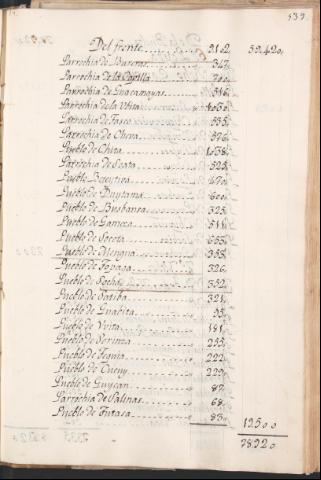 139.
Del frente 9102, 59.420,
Parrochia de 347,
Parrochia de la Capilla 700,
Parrochia de Guacamayas 516,
Parrochia de la Uvita 1030,
Parrochia de Tasco 535,
Parrochia de Cheva 376,
Pueblo de Chita 1038,
Parrochia de Soata 525,
Pueblo Betetiva 470,
Pueblo de Duytama 600,
Pueblo de Busbansa 325,
Pueblo de Gameza 511,
Pueblo de Socota 603,
Pueblo de Mengua 353,
Pueblo de Topaga 326,
Pueblo de Socha 332,
Pueblo de Sativa 321,
Pueblo de Guabita 93,
Pueblo de Uvita 181,
Pueblo de 255,
Pueblo de 222,
Pueblo de 229,
Pueblo de Guycan 87,
Parrochia de Salinas 68,
Pueblo de Tutasa 83,
19500
78920